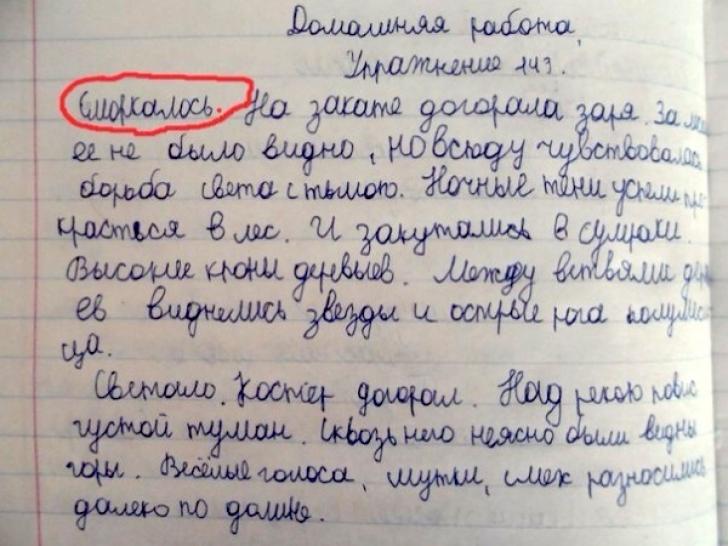 Домашняя работа,
Упражнение 143.
Сморкалось. На закате догорала заря. За
ее не было видно, но всюду чувствовалась
борьба света с тьмою. Ночные тени успели про
красться в лес. И закутались в сумраки.
Высокие крони деревьев. Между ветвями дер
ев виднелись звезды и острые рога полумеся
ца.
Светало. Костёр догорал. Над рекою повис
густой туман. Сквозь него неясно были видны
горы. Весёлые голоса, шутки, смех разносились
далеко по долине.